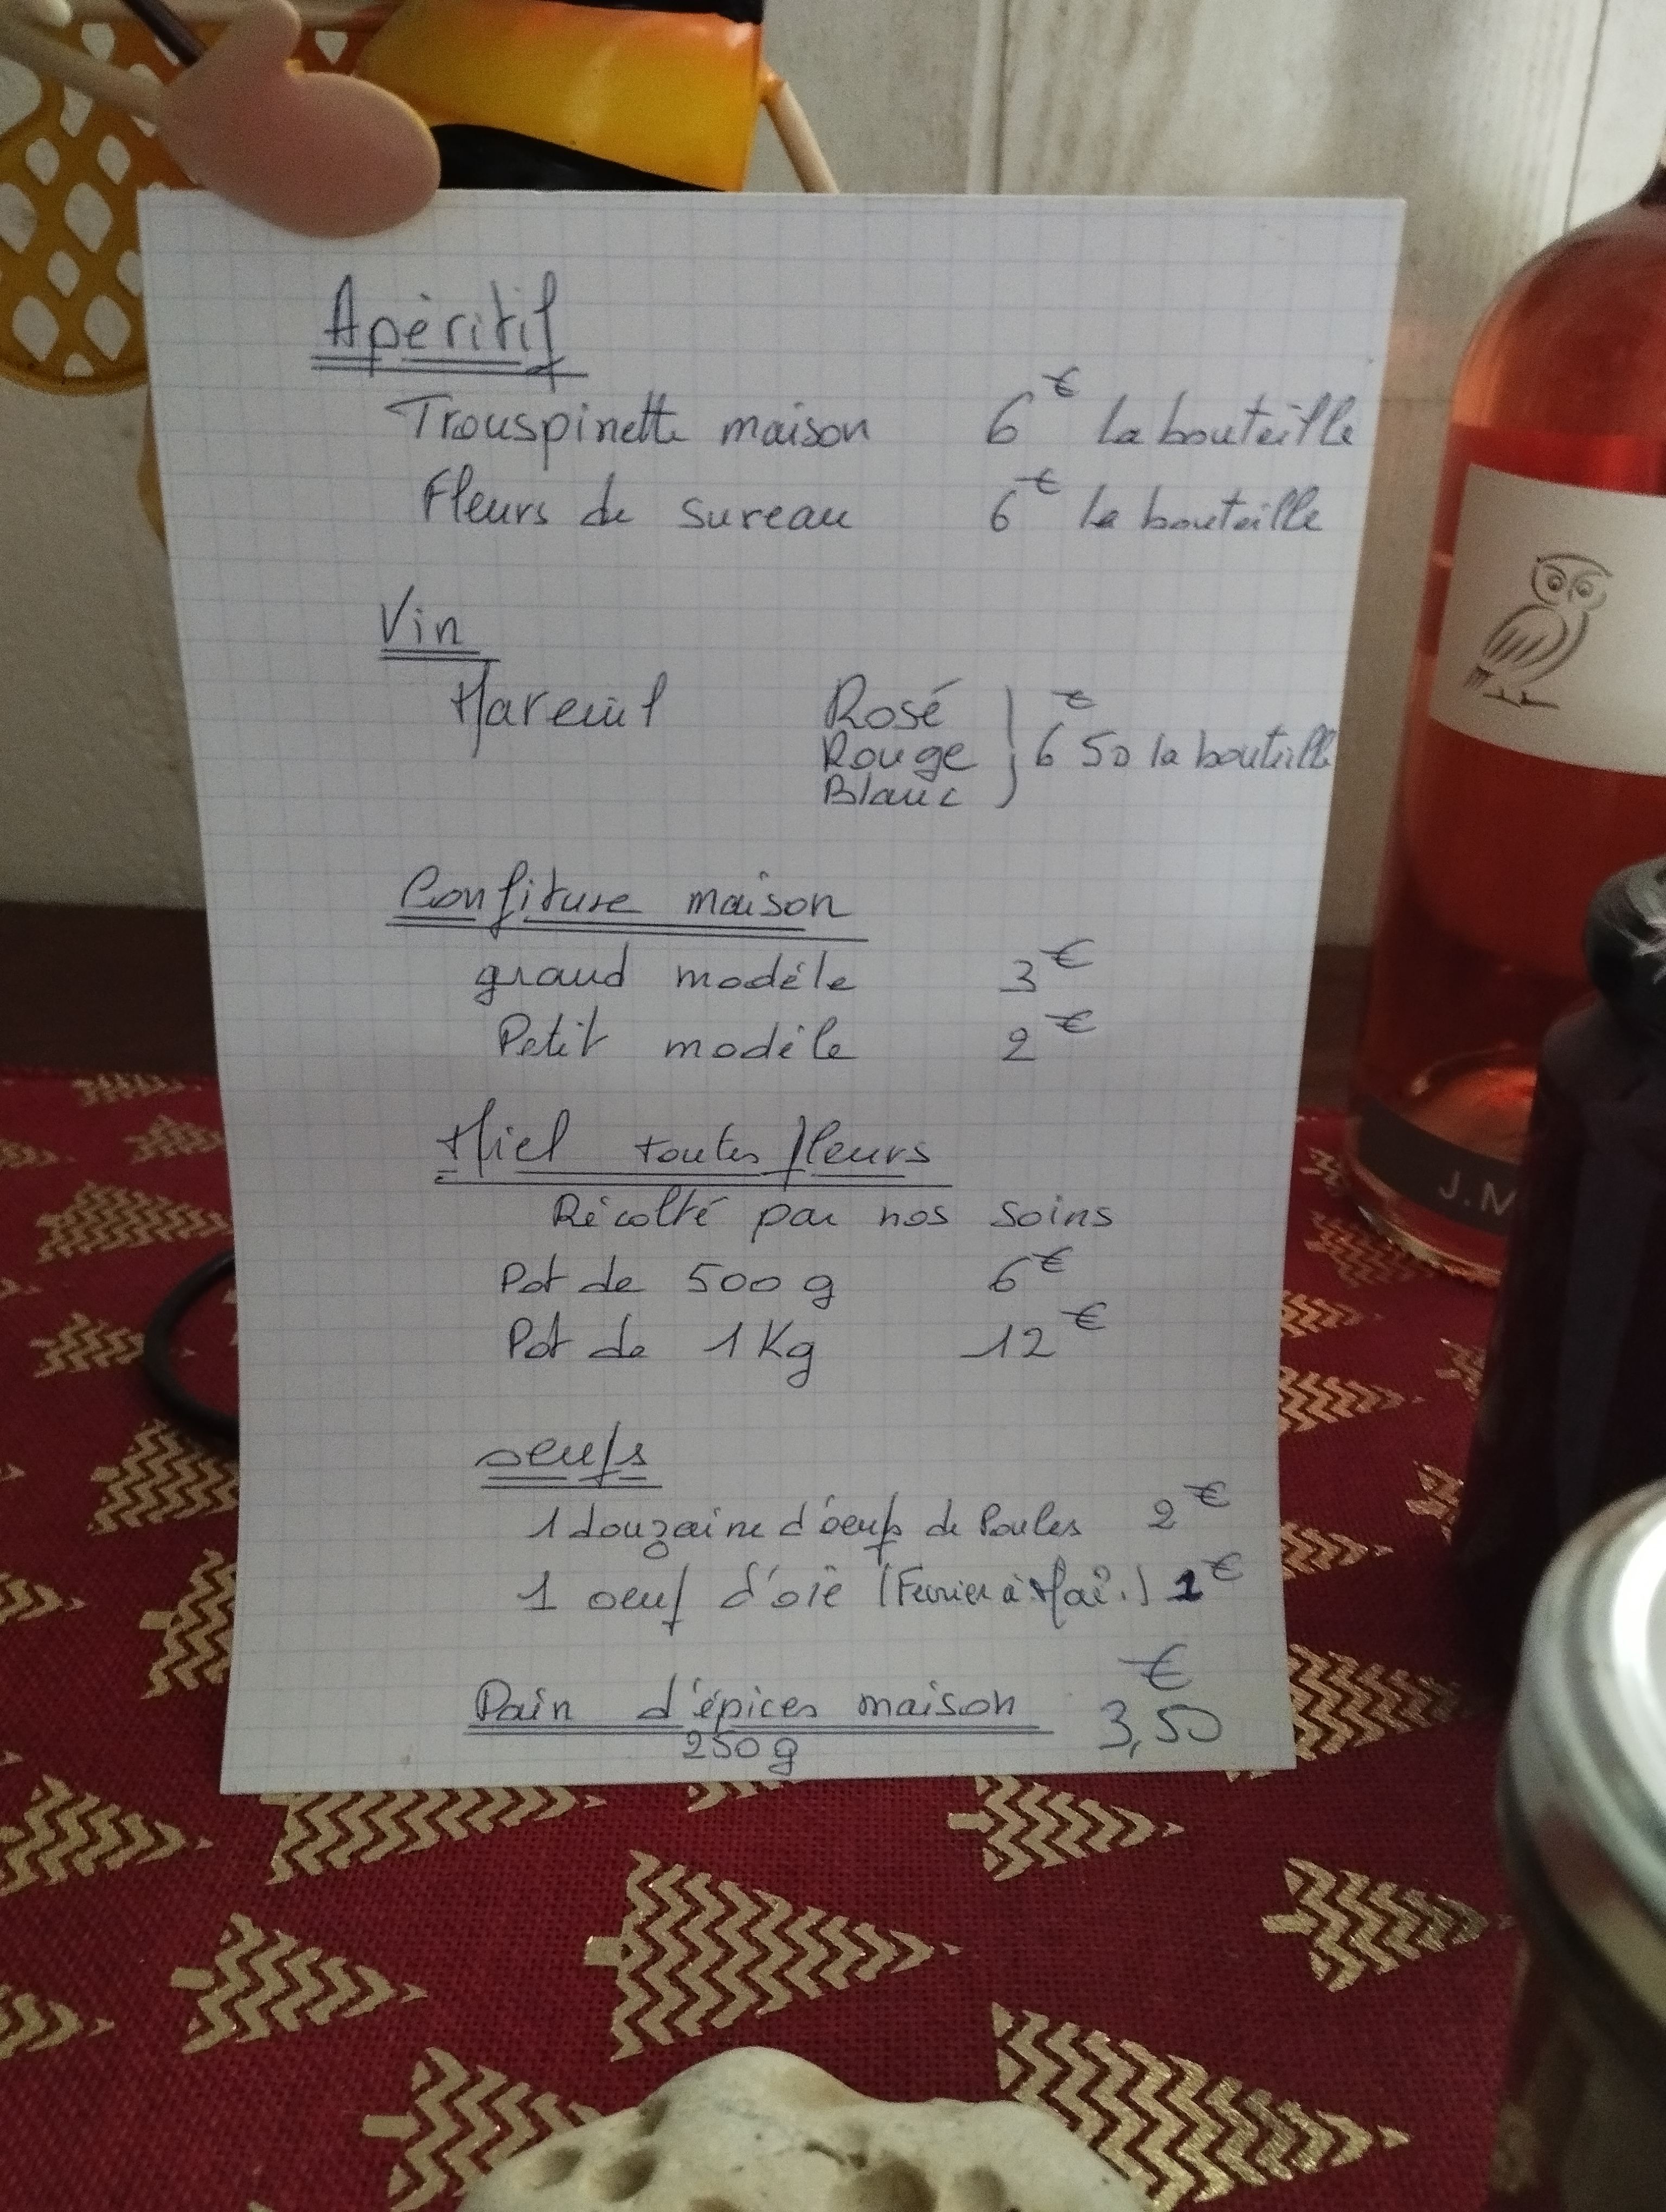 Apéritif
Trouspinette maison 6€ la bouteille
Fleurs de sureau 6€ la bouteille
Vin
Mareuil Rosé
Rouge 6€50 la bouteille
Blanc
Confiture maison
grand modèle 3€
Petit modèle 2€
Miel toutes fleurs
Récolté par nos soins
Pot de 500 g 6€
Pot de 1 Kg 12€
oeufs
1 douzaine d'oeufs de Poules 2€
1 oeuf d'oie (Fevrier à Mai.) 1€
Pain d'épices maison 3,50€
250 g
J.M